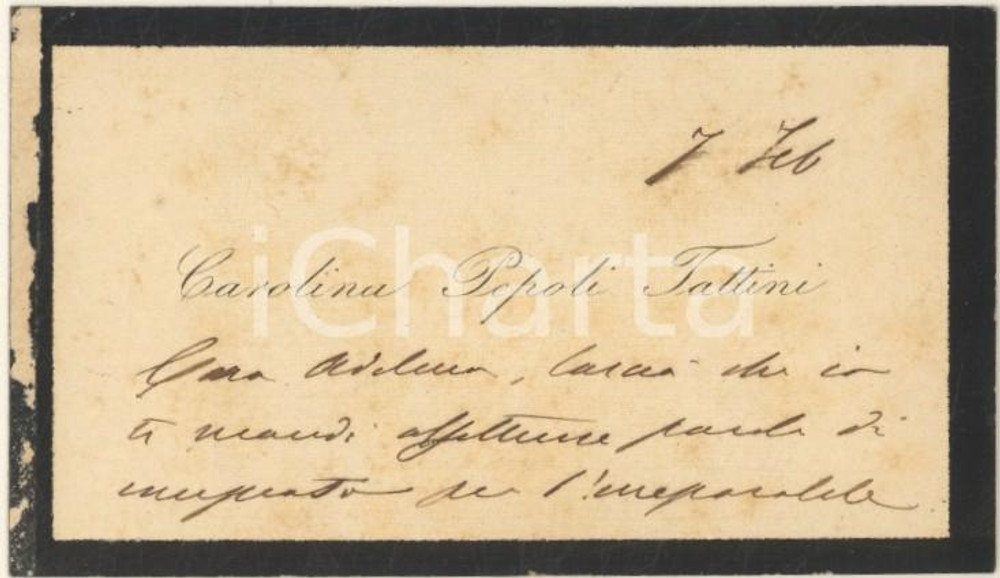 7 Feb
Carolina Pepoli Tattini
Cara Adelina, lascia che io
ti mandi affettuose parole di
per l'irreparabile
iCharta